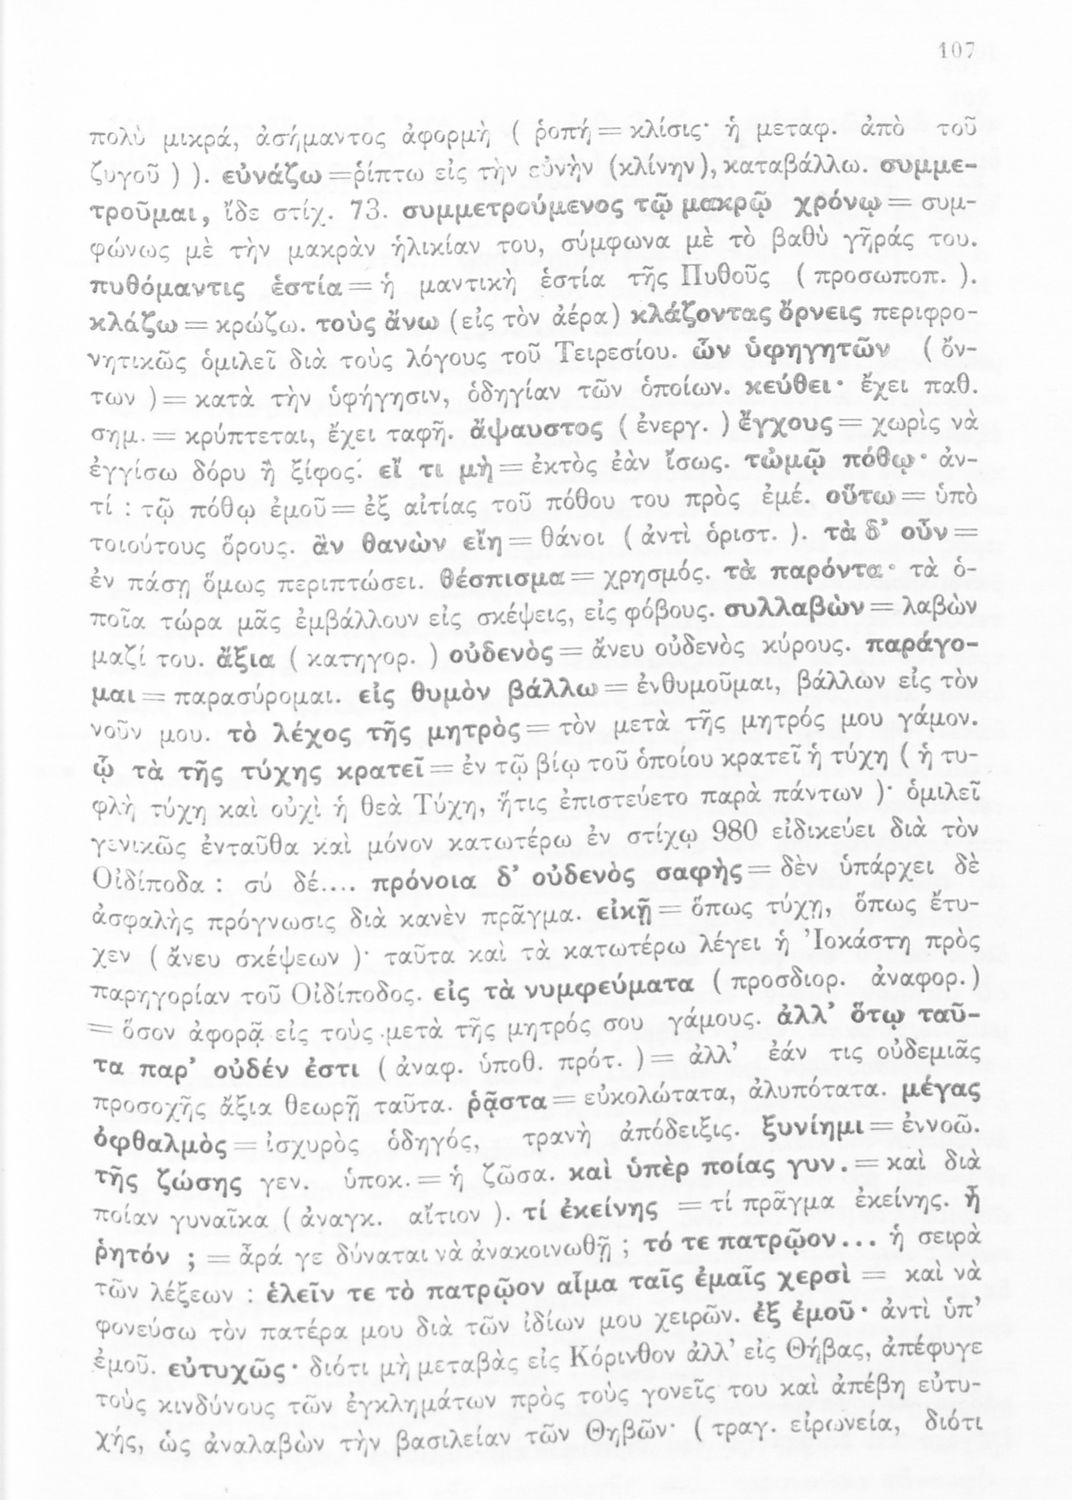 107
πολὺ μικρά, ἀσήμαντος ἀφορμὴ ( ῥοπή = κλίσις· ἡ μεταφ. ἀπὸ τοῦ
ζυγοῦ ) ). εὐνάζω = ῥίπτω εἰς τὴν εὐνὴν (κλίνην), καταβάλλω. συμμε-
τροῦμαι, ἴδε στίχ. 73. συμμετρούμενος τῷ μακρῷ χρόνῳ = συμ-
φώνως μὲ τὴν μακρὰν ἡλικίαν του, σύμφωνα μὲ τὸ βαθὺ γῆράς του.
πυθόμαντις ἑστία = ἡ μαντικὴ ἑστία τῆς Πυθοῦς ( προσωποπ. ).
κλάζω = κρώζω. τοὺς ἄνω (εἰς τὸν ἀέρα) κλάζοντας ὄρνεις περιφρο-
νητικῶς ὁμιλεῖ διὰ τοὺς λόγους τοῦ Τειρεσίου. ὧν ὑφηγητῶν ( ὄν-
των ) = κατὰ τὴν ὑφήγησιν, ὁδηγίαν τῶν ὁποίων. κεύθει· ἔχει παθ.
σημ. = κρύπτεται, ἔχει ταφῆ. ἄψαυστος ( ἐνεργ. ) ἔγχους = χωρὶς νὰ
ἐγγίσω δόρυ ἢ ξίφος. εἴ τι μὴ = ἐκτὸς ἐὰν ἴσως. τὠμῷ πόθῳ· ἀν-
τί : τῷ πόθῳ ἐμοῦ = ἐξ αἰτίας τοῦ πόθου του πρὸς ἐμέ. οὕτω = ὑπὸ
τοιούτους ὅρους. ἂν θανὼν εἴη = θάνοι ( ἀντὶ ὁριστ. ). τὰ δ' οὖν =
ἐν πάσῃ ὅμως περιπτώσει. θέσπισμα = χρησμός. τὰ παρόντα· τὰ ὁ-
ποῖα τώρα μᾶς ἐμβάλλουν εἰς σκέψεις, εἰς φόβους. συλλαβὼν = λαβὼν
μαζί του. ἄξια ( κατηγορ. ) οὐδενὸς = ἄνευ οὐδενὸς κύρους. παράγο-
μαι = παρασύρομαι. εἰς θυμὸν βάλλω = ἐνθυμοῦμαι, βάλλων εἰς τὸν
νοῦν μου. τὸ λέχος τῆς μητρὸς = τὸν μετὰ τῆς μητρός μου γάμον.
ᾧ τὰ τῆς τύχης κρατεῖ = ἐν τῷ βίῳ τοῦ ὁποίου κρατεῖ ἡ τύχη ( ἡ τυ-
φλὴ τύχη καὶ οὐχὶ ἡ θεὰ Τύχη, ἥτις ἐπιστεύετο παρὰ πάντων )· ὁμιλεῖ
γενικῶς ἐνταῦθα καὶ μόνον κατωτέρω ἐν στίχῳ 980 εἰδικεύει διὰ τὸν
Οἰδίποδα : σύ δέ.... πρόνοια δ' οὐδενὸς σαφὴς = δὲν ὑπάρχει δὲ
ἀσφαλὴς πρόγνωσις διὰ κανὲν πρᾶγμα. εἰκῇ = ὅπως τύχῃ, ὅπως ἔτυ-
χεν ( ἄνευ σκέψεων )· ταῦτα καὶ τὰ κατωτέρω λέγει ἡ Ἰοκάστη πρὸς
παρηγορίαν τοῦ Οἰδίποδος. εἰς τὰ νυμφεύματα ( προσδιορ. ἀναφορ.)
= ὅσον ἀφορᾷ εἰς τοὺς μετὰ τῆς μητρός σου γάμους. ἀλλ' ὅτῳ ταῦ-
τα παρ' οὐδέν ἐστι ( ἀναφ. ὑποθ. πρότ. ) = ἀλλ' ἐάν τις οὐδεμιᾶς
προσοχῆς ἄξια θεωρῇ ταῦτα. ῥᾷστα = εὐκολώτατα, ἀλυπότατα. μέγας
ὀφθαλμὸς = ἰσχυρὸς ὁδηγός, τρανὴ ἀπόδειξις. ξυνίημι = ἐννοῶ.
τῆς ζώσης γεν. ὑποκ. = ἡ ζῶσα. καὶ ὑπὲρ ποίας γυν. = καὶ διὰ
ποίαν γυναῖκα ( ἀναγκ. αἴτιον ). τί ἐκείνης = τί πρᾶγμα ἐκείνης. ἦ
ῥητόν ; = ἆρά γε δύναται νὰ ἀνακοινωθῇ ; τό τε πατρῷον... ἡ σειρὰ
τῶν λέξεων : ἑλεῖν τε τὸ πατρῷον αἷμα ταῖς ἐμαῖς χερσὶ = καὶ νὰ
φονεύσω τὸν πατέρα μου διὰ τῶν ἰδίων μου χειρῶν. ἐξ ἐμοῦ· ἀντὶ ὑπ'
ἐμοῦ. εὐτυχῶς· διότι μὴ μεταβὰς εἰς Κόρινθον ἀλλ' εἰς Θήβας, ἀπέφυγε
τοὺς κινδύνους τῶν ἐγκλημάτων πρὸς τοὺς γονεῖς του καὶ ἀπέβη εὐτυ-
χής, ὡς ἀναλαβὼν τὴν βασιλείαν τῶν Θηβῶν· ( τραγ. εἰρωνεία, διότι